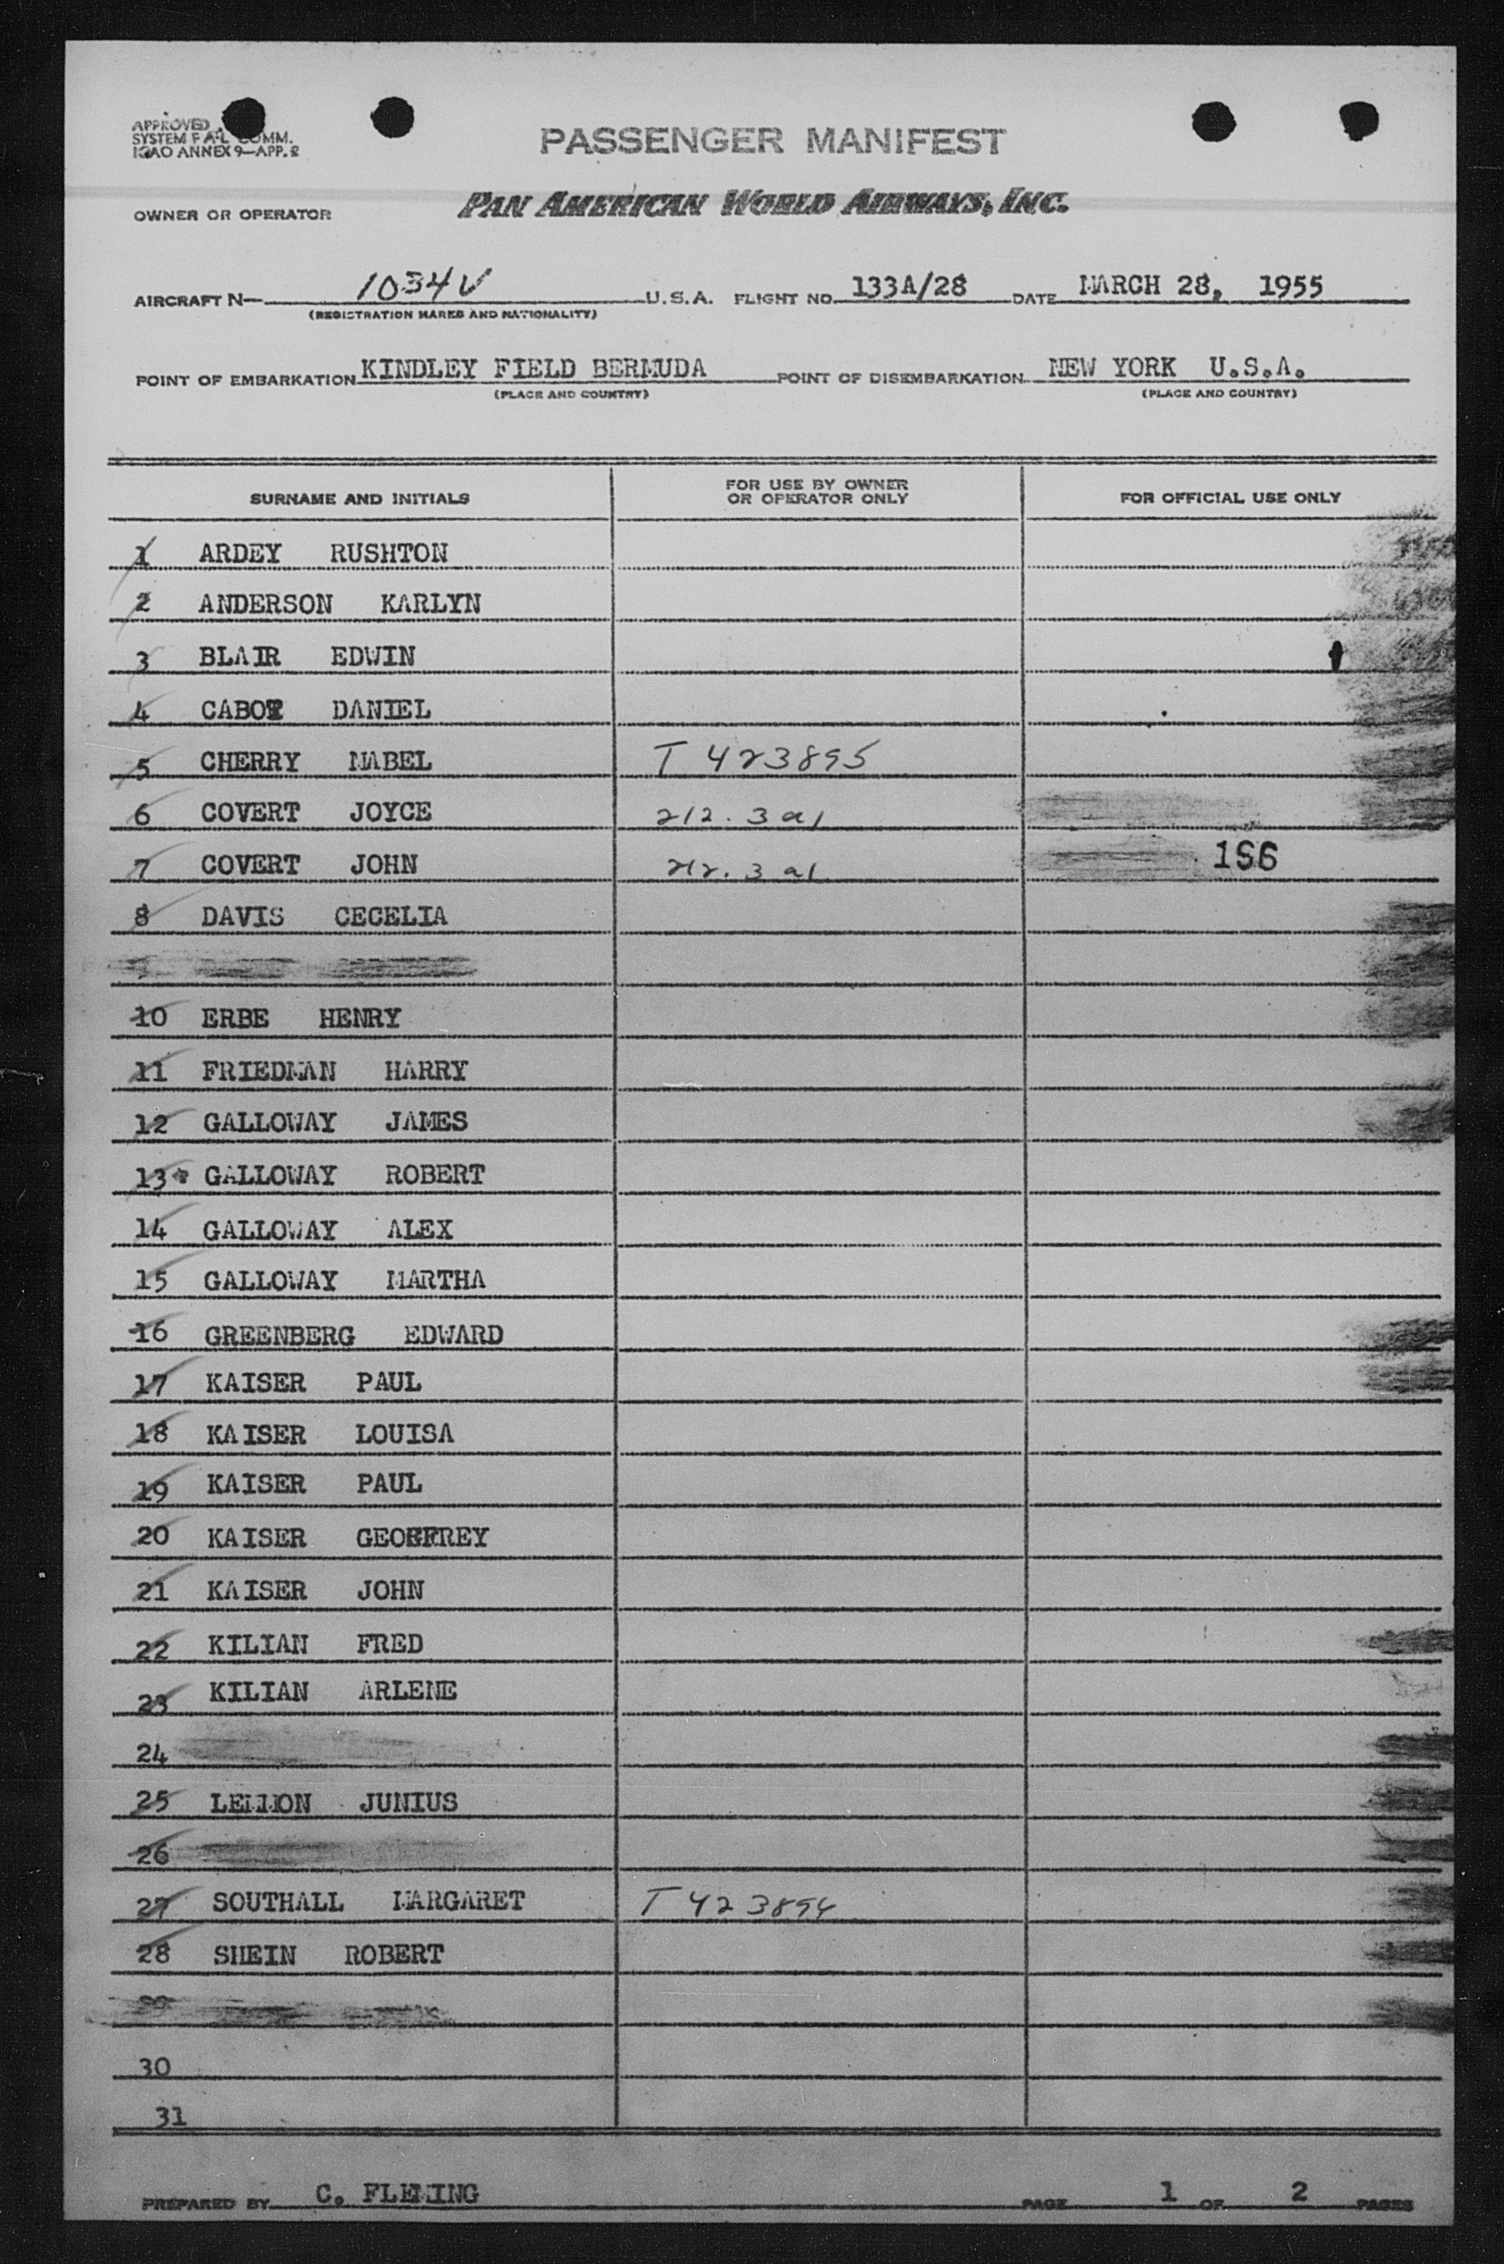 APPROVED
SYSTEM F A L COMM.
ICAO ANNEX 9—APP. 2
PASSENGER MANIFEST
OWNER OR OPERATOR PAN AMERICAN WORLD AIRWAYS, INC.
AIRCRAFT N— 1034V U.S.A. FLIGHT NO. 133A/28 DATE MARCH 28, 1955
(REGISTRATION MARKS AND NATIONALITY)
POINT OF EMBARKATION KINDLEY FIELD BERMUDA POINT OF DISEMBARKATION NEW YORK U.S.A.
(PLACE AND COUNTRY) (PLACE AND COUNTRY)
SURNAME AND INITIALS FOR USE BY OWNER OR OPERATOR ONLY FOR OFFICIAL USE ONLY
1 ARDEY RUSHTON
2 ANDERSON KARLYN
3 BLAIR EDWIN
4 CABOT DANIEL
5 CHERRY MABEL T 423895
6 COVERT JOYCE 212.3 a1
7 COVERT JOHN 212.3 a1 166
8 DAVIS CECELIA
10 ERBE HENRY
11 FRIEDMAN HARRY
12 GALLOWAY JAMES
13 GALLOWAY ROBERT
14 GALLOWAY ALEX
15 GALLOWAY MARTHA
16 GREENBERG EDWARD
17 KAISER PAUL
18 KAISER LOUISA
19 KAISER PAUL
20 KAISER GEOFFREY
21 KAISER JOHN
22 KILIAN FRED
23 KILIAN ARLENE
24
25 LEMMON JUNIUS
26
27 SOUTHALL MARGARET T 423894
28 SHEIN ROBERT
30
31
PREPARED BY C. FLEMING PAGE 1 OF 2 PAGES